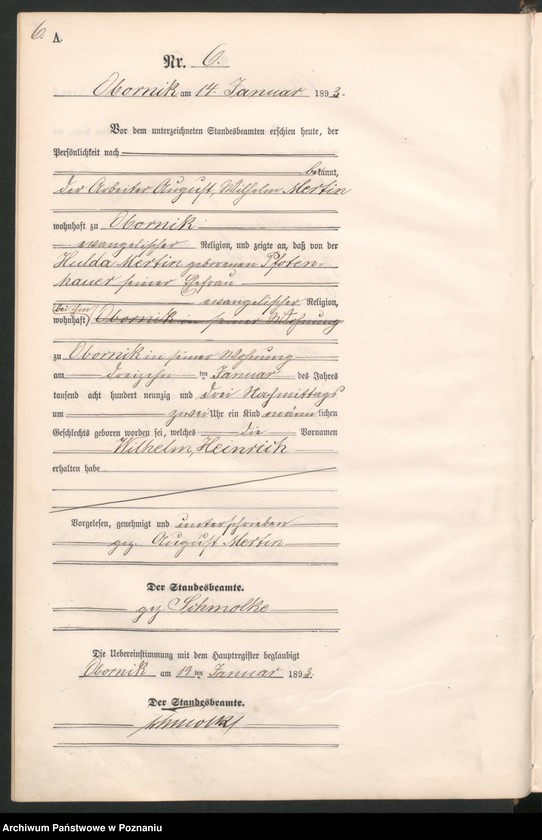 6.
A.
Nr. 6.
Obornik am 14. Januar 1893.
Vor dem unterzeichneten Standesbeamten erschien heute, der
Persönlichkeit nach
bekannt,
der Arbeiter August, Wilhelm Mertin
wohnhaft zu Obornik
evangelischer Religion, und zeigte an, daß von der
Hulda Mertin geborenen Pfoten-
hauer seiner Ehefrau
evangelischer Religion,
bei ihm
wohnhaft Obornik in seiner Wohnung
zu Obornik in seiner Wohnung
am dreizehn ten Januar des Jahres
tausend acht hundert neunzig und drei Nachmittags
um zwei Uhr ein Kind männlichen
Geschlechts geboren worden sei, welches die Vornamen
Wilhelm, Heinrich
erhalten habe
Vorgelesen, genehmigt und unterschrieben
gez. August Mertin
Der Standesbeamte.
gez Schmolke
Die Uebereinstimmung mit dem Hauptregister beglaubigt
Obornik am 14 ten Januar 1893.
Der Standesbeamte.
Schmolke
Archiwum Państwowe w Poznaniu